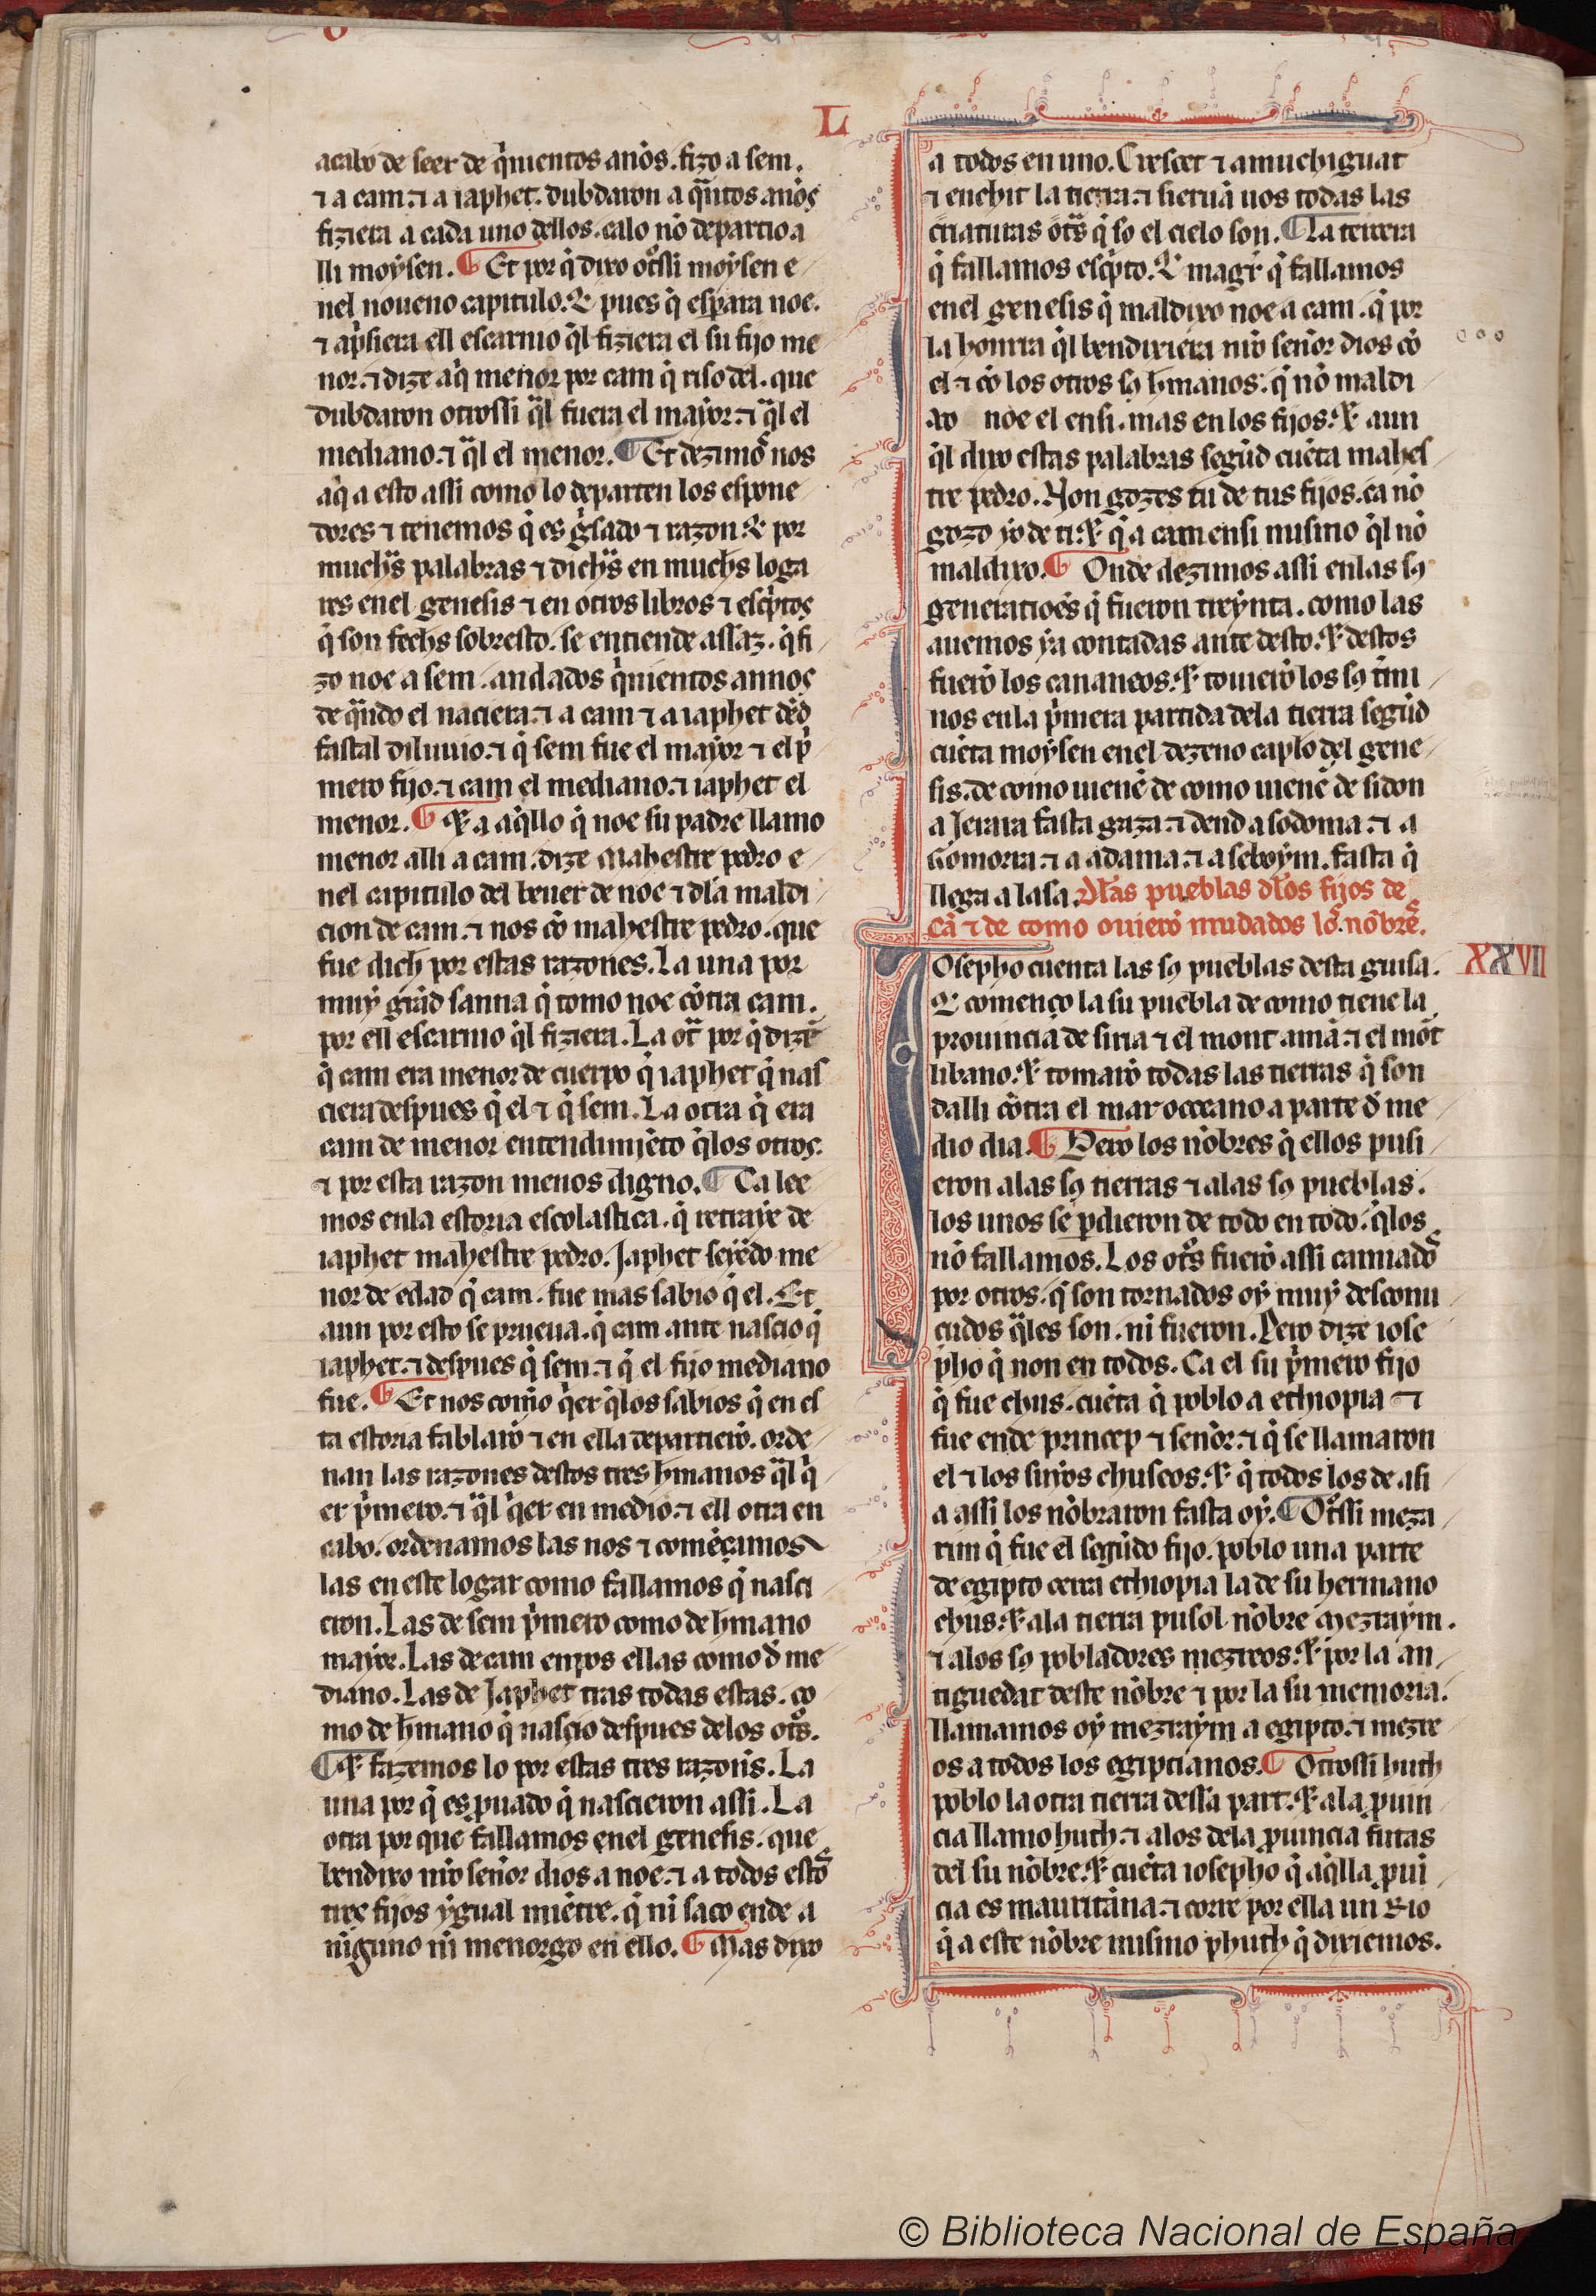 L
acabo de seer de q̇nientos anos. fizo a sem.
⁊ a cam. ⁊ a iaphet. dubdaron a q̃ntos anos
fiziera a cada uno dellos. calo nō departio a
lli moẏsen. ¶ Et por q̇ dixo otͦssi moẏsen e
nel noueno capitulo. ⁊ pues q̇ esp̱tara noe.
⁊ ap̃siera ell escarnio q̇l fiziera el su fijo me
nor. ⁊ dize aq̇ menor por cam q̇ riso del. que
dubdaron otrossi q̃l fuera el maẏor. ⁊ q̃l el
mediano. ⁊ q̃l el menor. ¶ Et dezimoˢ nos
aq̇ a esto assi como lo departen los espone
dores ⁊ tenemos q̇ es g̃sado ⁊ razon. ⁊ por
muchˢ palabras ⁊ dichˢ en muchˢ loga
res enel genesis ⁊ en otros libros ⁊ escp̃tos
q̇ son fechˢ sobresto. se entiende assaz. q̇ fi
zo noe a sem. andados q̇nientos annos
de q̃ndo el naciera. ⁊ a cam ⁊ a iaphet dẽd
fastal diluuio. ⁊ q̇ sem fue el maẏor ⁊ el p̃
mero fijo. ⁊ cam el mediano. ⁊ iaphet el
menor. ¶ ⁊ a aq̇llo q̇ noe su padre llamo
menor alli a cam. dize Mahestre pedro e
nel capitulo del beuer de noe ⁊ dla maldi
cion de cam. ⁊ nos cō mahestre pedro. que
fue dich por estas razones. La una por
muẏ grād sanna q̇ tomo noe cōtra cam.
por ell escarnio q̇l fiziera. La otᷓ por q̇ dizē
q̇ cam era menor de cuerpo q̇ iaphet q̇ nas
ciera despues q̇ el ⁊ q̇ sem. La otra q̇ era
cam de menor entendimiēto q̇ los otros.
⁊ por esta razon menos digno. ¶ Ca lee
mos enla estoria escolastica. q̇ retraẏe de
iaphet mahestre pedro. Japhet seẏēdo me
nor de edad q̇ cam. fue mas sabio q̇ el. Et
aun por esto se prueua. q̇ cam ante nascio q̇
iaphet. ⁊ despues q̇ sem. ⁊ q̇ el fijo mediano
fue. ¶ Et nos como q̇er q̇ los sabios q̇ en es
ta estoria fablarō ⁊ en ella departierō. orde
nan las razones destos tres hm̄anos q̃l q̇
er p̃mero. ⁊ q̃l q̇er en medio. ⁊ ell otra en
cabo. ordenamos las nos ⁊ comēçamos
las en este logar como fallamos q̇ nasci
eron. Las de sem p̃mero como de hm̄ano
maẏor. Las de cam enpos ellas como đ me
diano. Las de Japhet tras todas estas. co
mo de hm̄ano q̇ nascio despues delos otͦs.
¶ ⁊ fazemos lo por estas tres razon̄s. La
una por q̇ es ꝓuado q̇ nascieron assi. La
otra por que fallamos enel genesis. que
bendixo nr̄o señor dios a noe. ⁊ a todos estoˢ
tres fijos ẏgual miētre. q̇ ni saco ende a
niguno ni menorgo en ello. ¶ Mas dixo
a todos en uno. Cresçet ⁊ amuchiguat
⁊ enchit la tierra. ⁊ sieruā uos todas las
criaturas otᷓs q̇ so el cielo son. ¶ La tercera
q̇ fallamos escp̃to. ⁊ mag̃r q̇ fallamos
enel genesis q̇ maldixo noe a cam. q̇ por
la honrra q̇l bendixiera nr̄o señor dios cō
el ⁊ cō los otros sꝯ hm̄anos. q̇ nō maldi
xo noe el ensi. mas en los fijos. ⁊ aun
q̇l dixo estas palabras segūd cuēta mahes
tre pedro. Non gozes tu de tus fijos. ca nō
gozo ẏo de ti. ⁊ q̇ a cam ensi mismo q̇l nō
maldixo. ¶ Onde dezimos assi enlas sꝯ
generatioēs q̇ fueron treẏnta. como las
auemos ẏa contadas ante desto. ⁊ destos
fuerō los cananeos. ⁊ touierō los sꝯ t̄mi
nos enla p̃mera partida dela tierra segūd
cuēta moẏsen enel dezeno cap̄lo del gene
sis. de como uienē de como uienē de sidon
a Jerara fasta gaza. ⁊ dend a sodoma. ⁊ a
Gomorra. ⁊ a adama. ⁊ a seboẏm. fasta q̇
llega a lasa. Dłas pueblas dłos fijos de
cā ⁊ de como ouierō mudados loˢ nōbreˢ.
XXVII
Josepho cuenta las sꝯ pueblas desta guisa.
⁊ començo la su puebla de como tiene la
prouincia de siria ⁊ el mont amā. ⁊ el mōt
libano. ⁊ tomarō todas las tierras q̇ son
dalli cōtra el mar occeano a parte đ me
dio dia. ¶ Pero los nōbres q̇ ellos pusi
eron alas sꝯ tierras ⁊ alas sꝯ pueblas.
los unos se ꝑdieron de todo en todo. q̇ los
nō fallamos. Los otͦs fuerō assi camiadoˢ
por otros. q̇ son tornados oẏ muẏ desconu
çudos q̃les son. ni fueron. Pero dize iose
pho q̇ non en todos. Ca el su p̃mero fijo
q̇ fue chus. cuēta q̇ poblo a ethiopia ⁊
fue ende princep ⁊ señor. ⁊ q̇ se llamaron
el ⁊ los suẏos chuseos. ⁊ q̇ todos los de asi
a assi los nōbraron fasta oẏ. ¶ Otͦssi meza
rim q̇ fue el segūdo fijo. poblo una parte
de egipto cerca ethiopia la de su hermano
chus. ⁊ ala tierra pusol nōbre Mezraẏm.
⁊ alos sꝯ pobladores mezreos. ⁊ por la an
tiguedat deste nōbre ⁊ por la su memoria.
llamamos oẏ mezraẏm a egipto. ⁊ mezre
os a todos los egiptianos. ¶ Otrossi huth
poblo la otra tierra dessa part. ⁊ ala ꝓuin
cia llamo huth. ⁊ alos dela ꝓuincia futas
del su nōbre. ⁊ cuēta iosepho q̇ aq̇lla ꝓuī
cia es mauritana. ⁊ corre por ella un Rio
q̇ a este nōbre mismo phuth q̇ dixiemos.
© Biblioteca Nacional de España